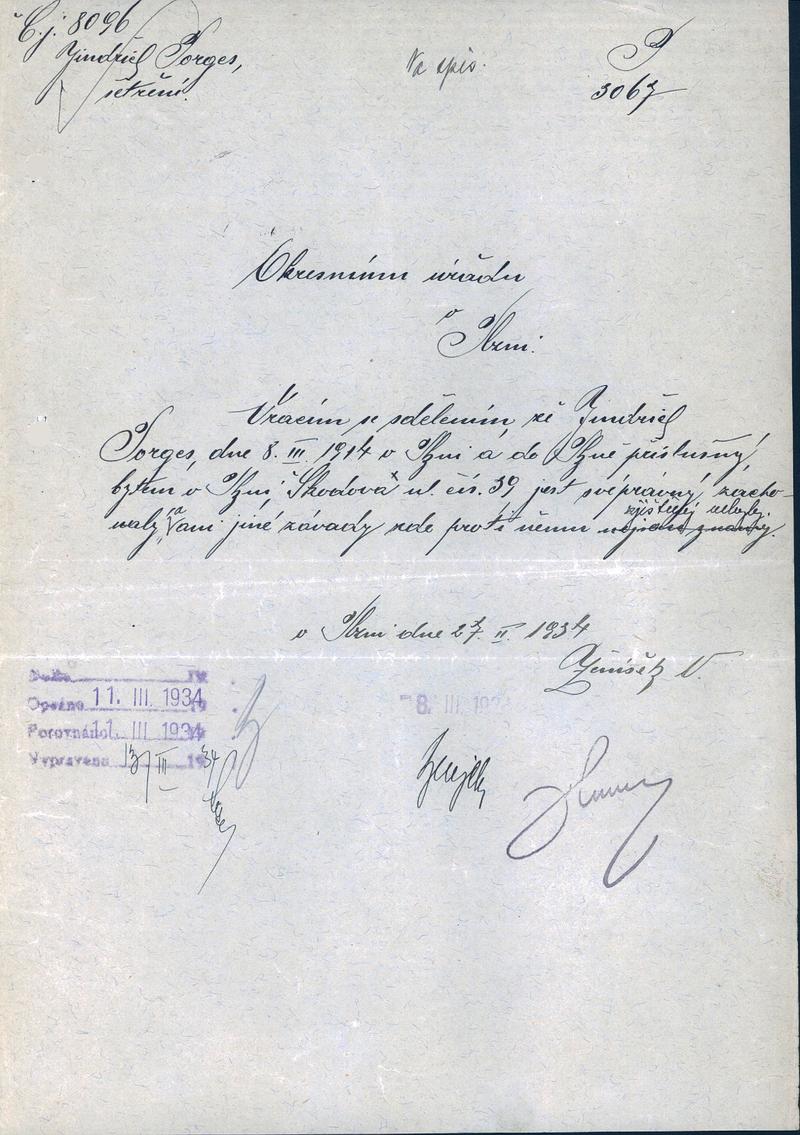 Č.j. 8096
Jindřich Porges,
šetření.
Na spis.
P
3067
Okresnímu úřadu
v
Plzni.
Vracím se sdělením, že Jindřich
Porges, dne 8. III. 1914 v Plzni a do Plzně příslušný,
bytem v Plzni, Škodova ul. čís. 39, jest svéprávný, zacho-
valý, a ani jiné závady zde proti němu nejsou známy.
zjištěny nebyly.
v Plzni dne 27. II. 1934
Došlo 19
Opsáno 11. III. 1934
Porovnáno 11. III. 1934
Vypraveno 13/III 1934
8. III. 1934